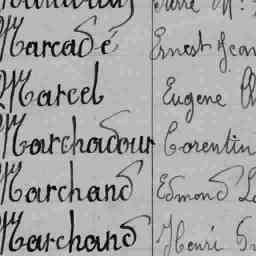 Marcadé Ernest Jean
Marcel Eugene
Marchadour Corentin
Marchand Edmond
Marchand Henri